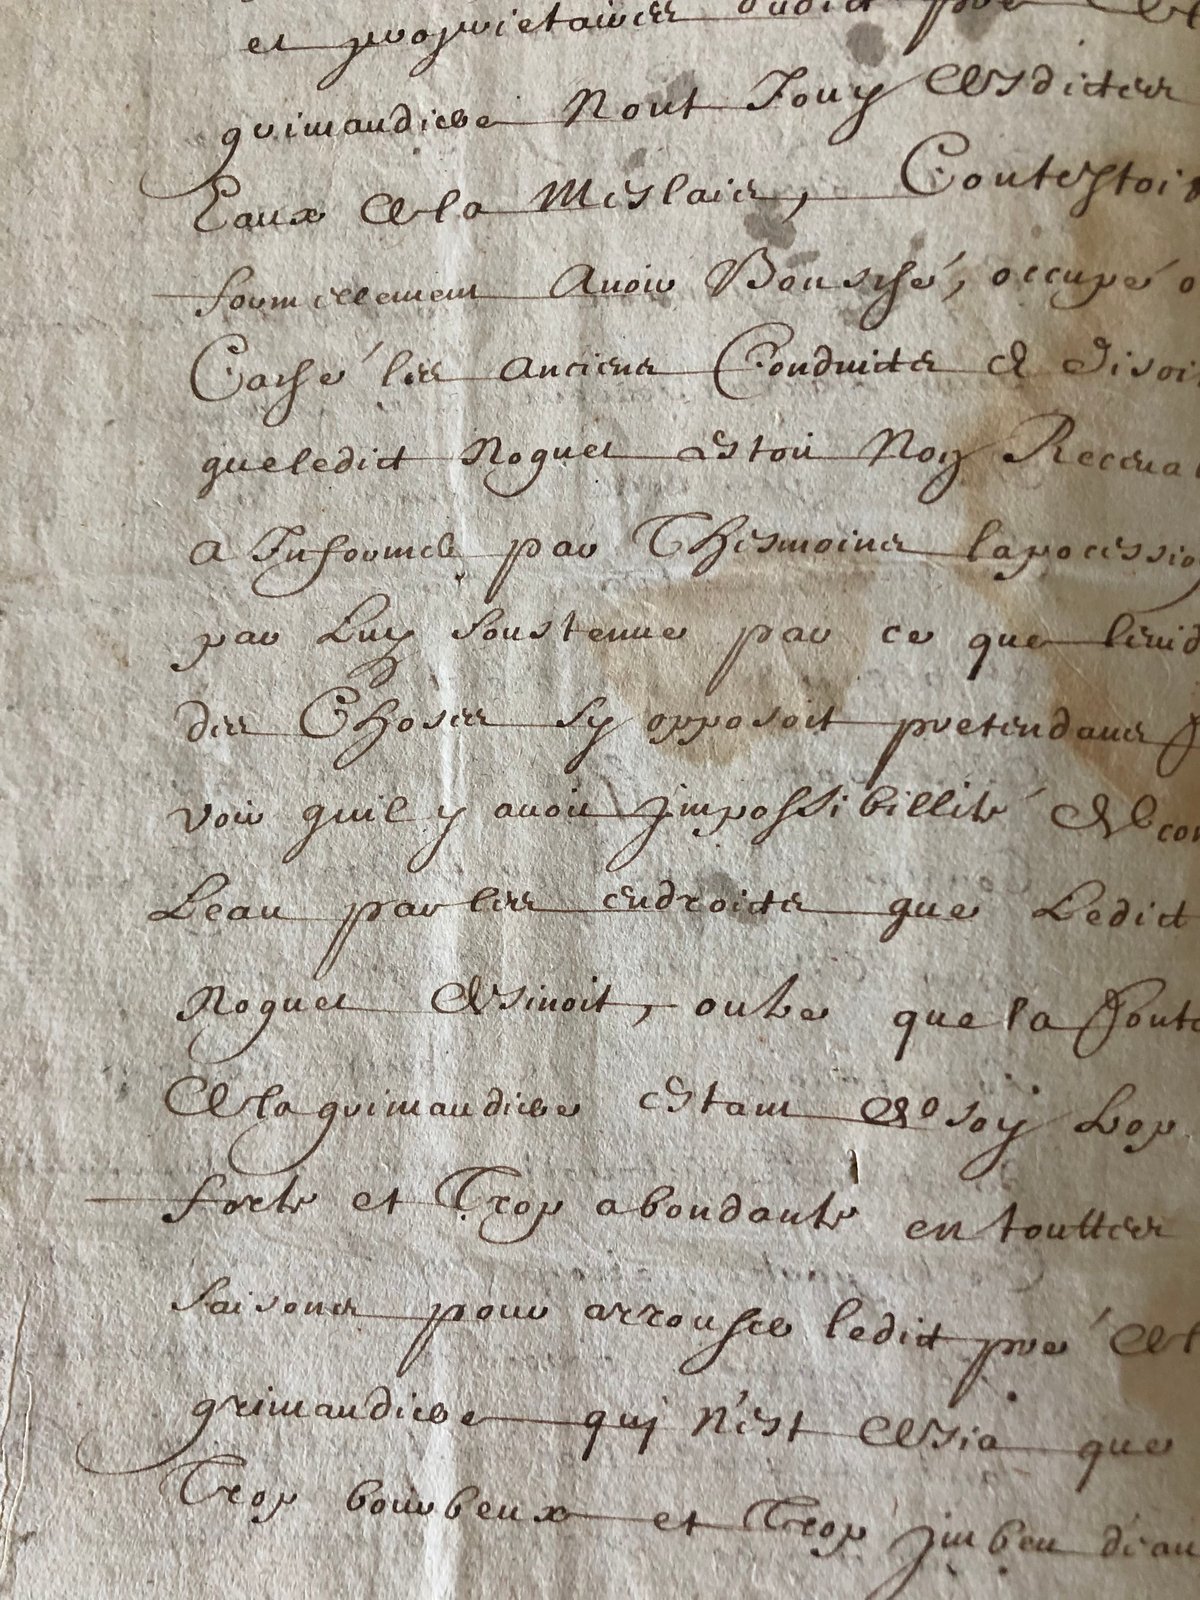 et proprietaires dudict pré de
grimaudiere Nont Jouy desdictes
Eaux de la Meslaie, Contestoit
formellement Avoir Bousché, occupé o
Cassé les anciens Conduits et disoit
que ledict Noguet estoit Non Recevab
a Informer par Thesmoins la pocession
par Luy soustenue par ce que levid
des Choses sy opposoit pretendant f
voir quil y avoit jmpossibillité de con
Leau par les endroicts que Ledict
Noguet designoit, outre que la fonta
de la grimaudiere estant de soy trop
forte et Trop abondante en touttes
saisons pour arrouser ledict pré de l
grimaudiere quj n'est desia que
Trop bourbeux et Trop jmbeu d'eau